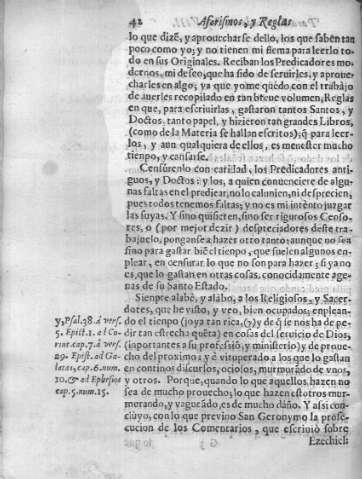 42 Aforismos, y Reglas
lo que dizē, y aprouecharse dello, los que sabēn tan
poco como yo; y no tienen mi flema para leerlo to
do en sus Originales. Reciban los Predicadores mo
dernos, mi deseo, que ha sido de seruirles, y aproue
charles en algo, ya que yo me quedo con el trabajo
de auerles recopilado en tan breue volumen, Reglas
en que, para escriuirlas, gastaron tantos Santos, y
Doctos, tanto papel, y hizieron tan grandes Libros,
(como de la Materia se hallan escritos) q̃ para leer-
los, y aun qualquiera de ellos, es menester mucho
tiempo, y cansarse.
Censurenlo con caridad, los Predicadores anti-
guos, y Doctos: y los, a quien conuenciere de algu-
nas faltas en el predicar, no lo calunien, ni desprecien,
pues todos tenemos faltas; y no es mi intento juzgar
las suyas. Y sino quisieren, sino ser rigurosos Censo-
res, o (por mejor dezir) despreciadores deste tra-
bajuelo, ponganse a hazer otro tanto: aunque no sea
sino para gastar biē el tiempo, que suelen algunos en-
plear, en censurar lo que no son para hazer; si ya no
es, que lo gasten en otras cosas, conocidamente age-
nas de su Santo Estado.
Sienpre alabè, y alabo, a los Religiosos, y Sacer-
dores, que he visto, y veo, bien ocupados; enplean-
do el tienpo (joya tan rica, (7) y de q̃ se nos ha de pe-
dir tan estrecha quēta) en cosas del seruicio de Dios,
(importantes a su professiō, y ministerio) y de proue-
cho del proximo; y è vituperado a los que lo gastan
en continos discursos, ociosos, murmurādo de vnos,
y otros. Porque, quando lo que aquellos hazen no
sea de mucho prouecho; lo que hazen estotros mur-
murando, y vagueādo, es de mucho daño. Y assi con-
cluyo, con lo que preuino San Geronymo la prose-
cucion de los Comentarios, que escriuiò sobre
Ezechiel:
7, Psal. 38. à vers.
5. Epist. 1. al Co-
rint. cap. 7. à vers.
29. Epist. al Ga-
latas, cap. 6. num.
10. & al Ephesios
cap. 5. num. 15.